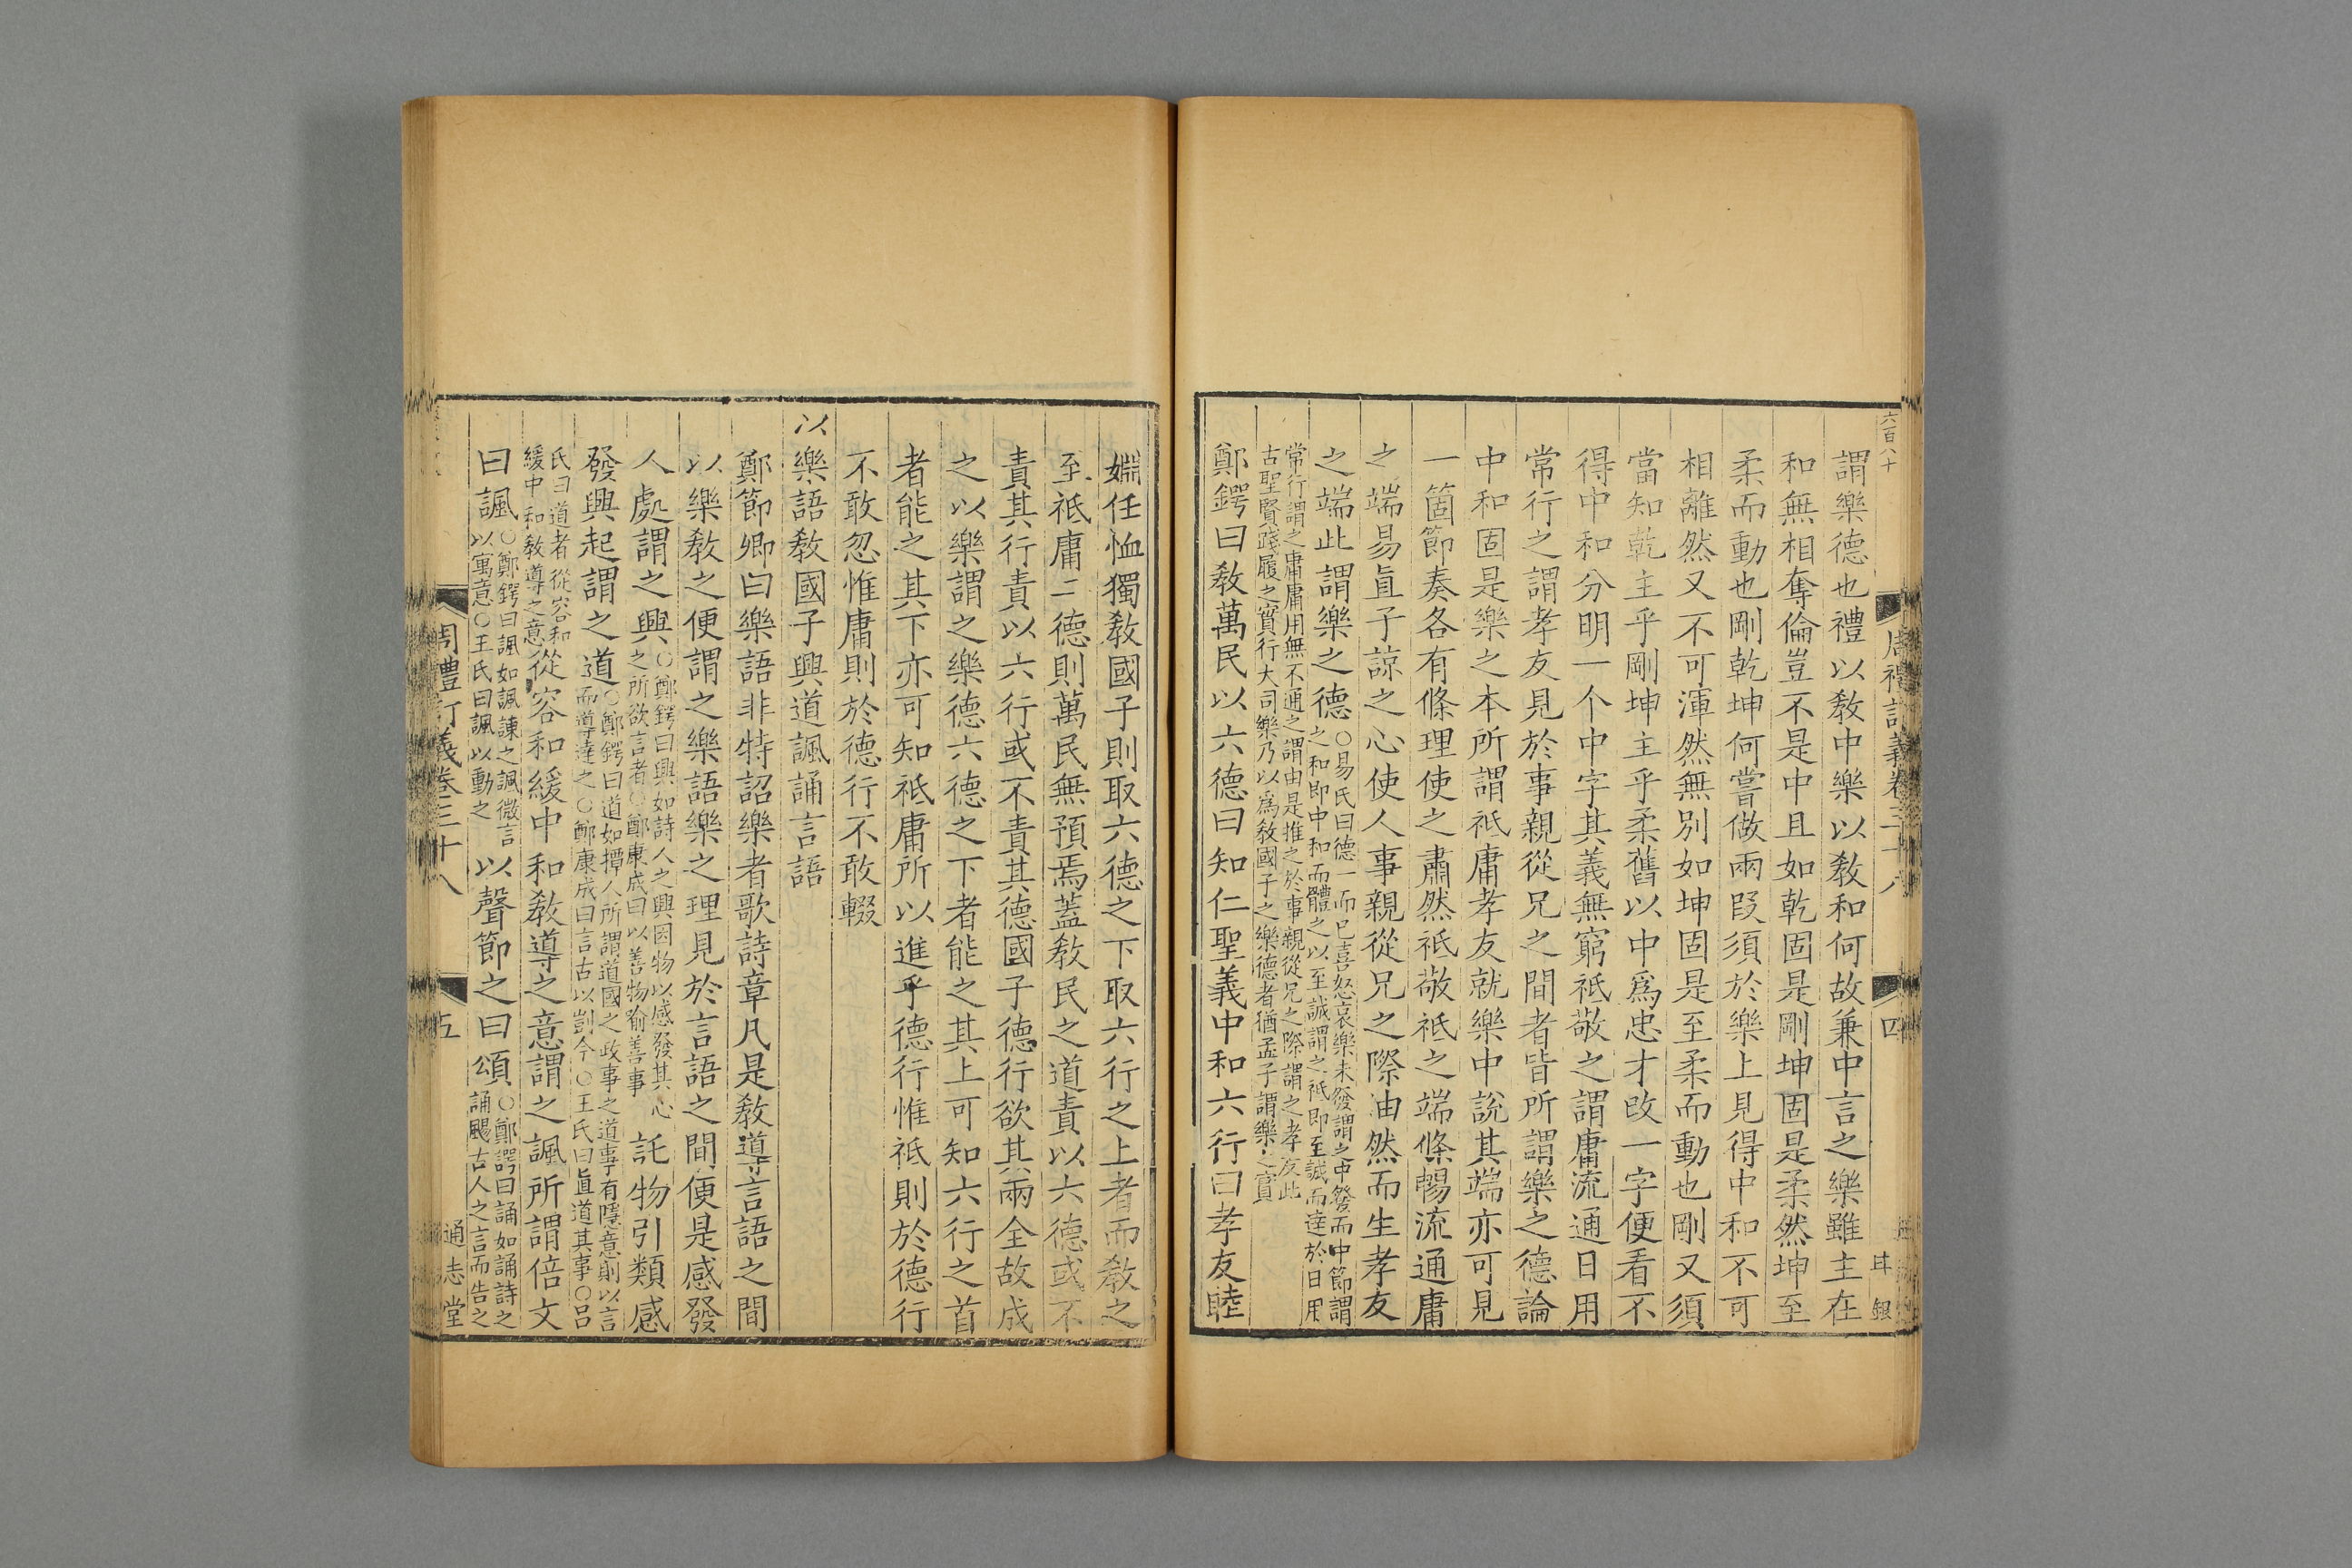 六百八十
周禮訂義卷三十八
四
謂樂德也禮以敎中樂以敎和何故兼中言之樂雖主在
和無相奪倫豈不是中且如乾固是剛坤固是柔然坤至
柔而動也剛乾坤何嘗做兩段須於樂上見得中和不可
相離然又不可渾然無別如坤固是至柔而動也剛又須
當知乾主乎剛坤主乎柔舊以中爲忠才改一字便看不
得中和分明一个中字其義無窮祗敬之謂庸流通日用
常行之謂孝友見於事親從兄之間者皆所謂樂之德論
中和固是樂之本所謂祗庸孝友就樂中說其端亦可見
一箇節奏各有條理使之肅然祗敬祗之端條暢流通庸
之端易直子諒之心使人事親從兄之際油然而生孝友
之端此謂樂之德○易氏曰德一而已喜怒哀樂未發謂之中發而中節謂
之和即中和而體之以至誠謂之祗即至誠而達於日用
常行謂之庸庸用無不通之謂由是推之於事親從兄之際謂之孝友此
古聖賢踐履之實行大司樂乃以爲敎國子之樂德者猶孟子謂樂之實
鄭鍔曰敎萬民以六德曰知仁聖義中和六行曰孝友睦
婣任恤獨敎國子則取六德之下取六行之上者而敎之
至祗庸二德則萬民無預焉蓋敎民之道責以六德或不
責其行責以六行或不責其德國子德行欲其兩全故成
之以樂謂之樂德六德之下者能之其上可知六行之首
者能之其下亦可知祗庸所以進乎德行惟祗則於德行
不敢忽惟庸則於德行不敢輟
以樂語敎國子興道諷誦言語
鄭節卿曰樂語非特詔樂者歌詩章凡是敎導言語之間
以樂敎之便謂之樂語樂之理見於言語之間便是感發
人處謂之興○鄭鍔曰興如詩人之興因物以感發其心
之所欲言者○鄭康成曰以善物喻善事
託物引類感
發興起謂之道○鄭鍔曰道如撢人所謂道國之政事之道事有隱意則以言
而導達之○鄭康成曰言古以剴今○王氏曰直道其事○呂
氏曰道者從容和
緩中和敎導之意
從容和緩中和敎導之意謂之諷所謂倍文
曰諷○鄭鍔曰諷如諷諫之諷微言
以寓意○王氏曰諷以動之
以聲節之曰頌○鄭諤曰誦如誦詩之
誦颺古人之言而告之
周禮訂義卷三十八
五
通志堂